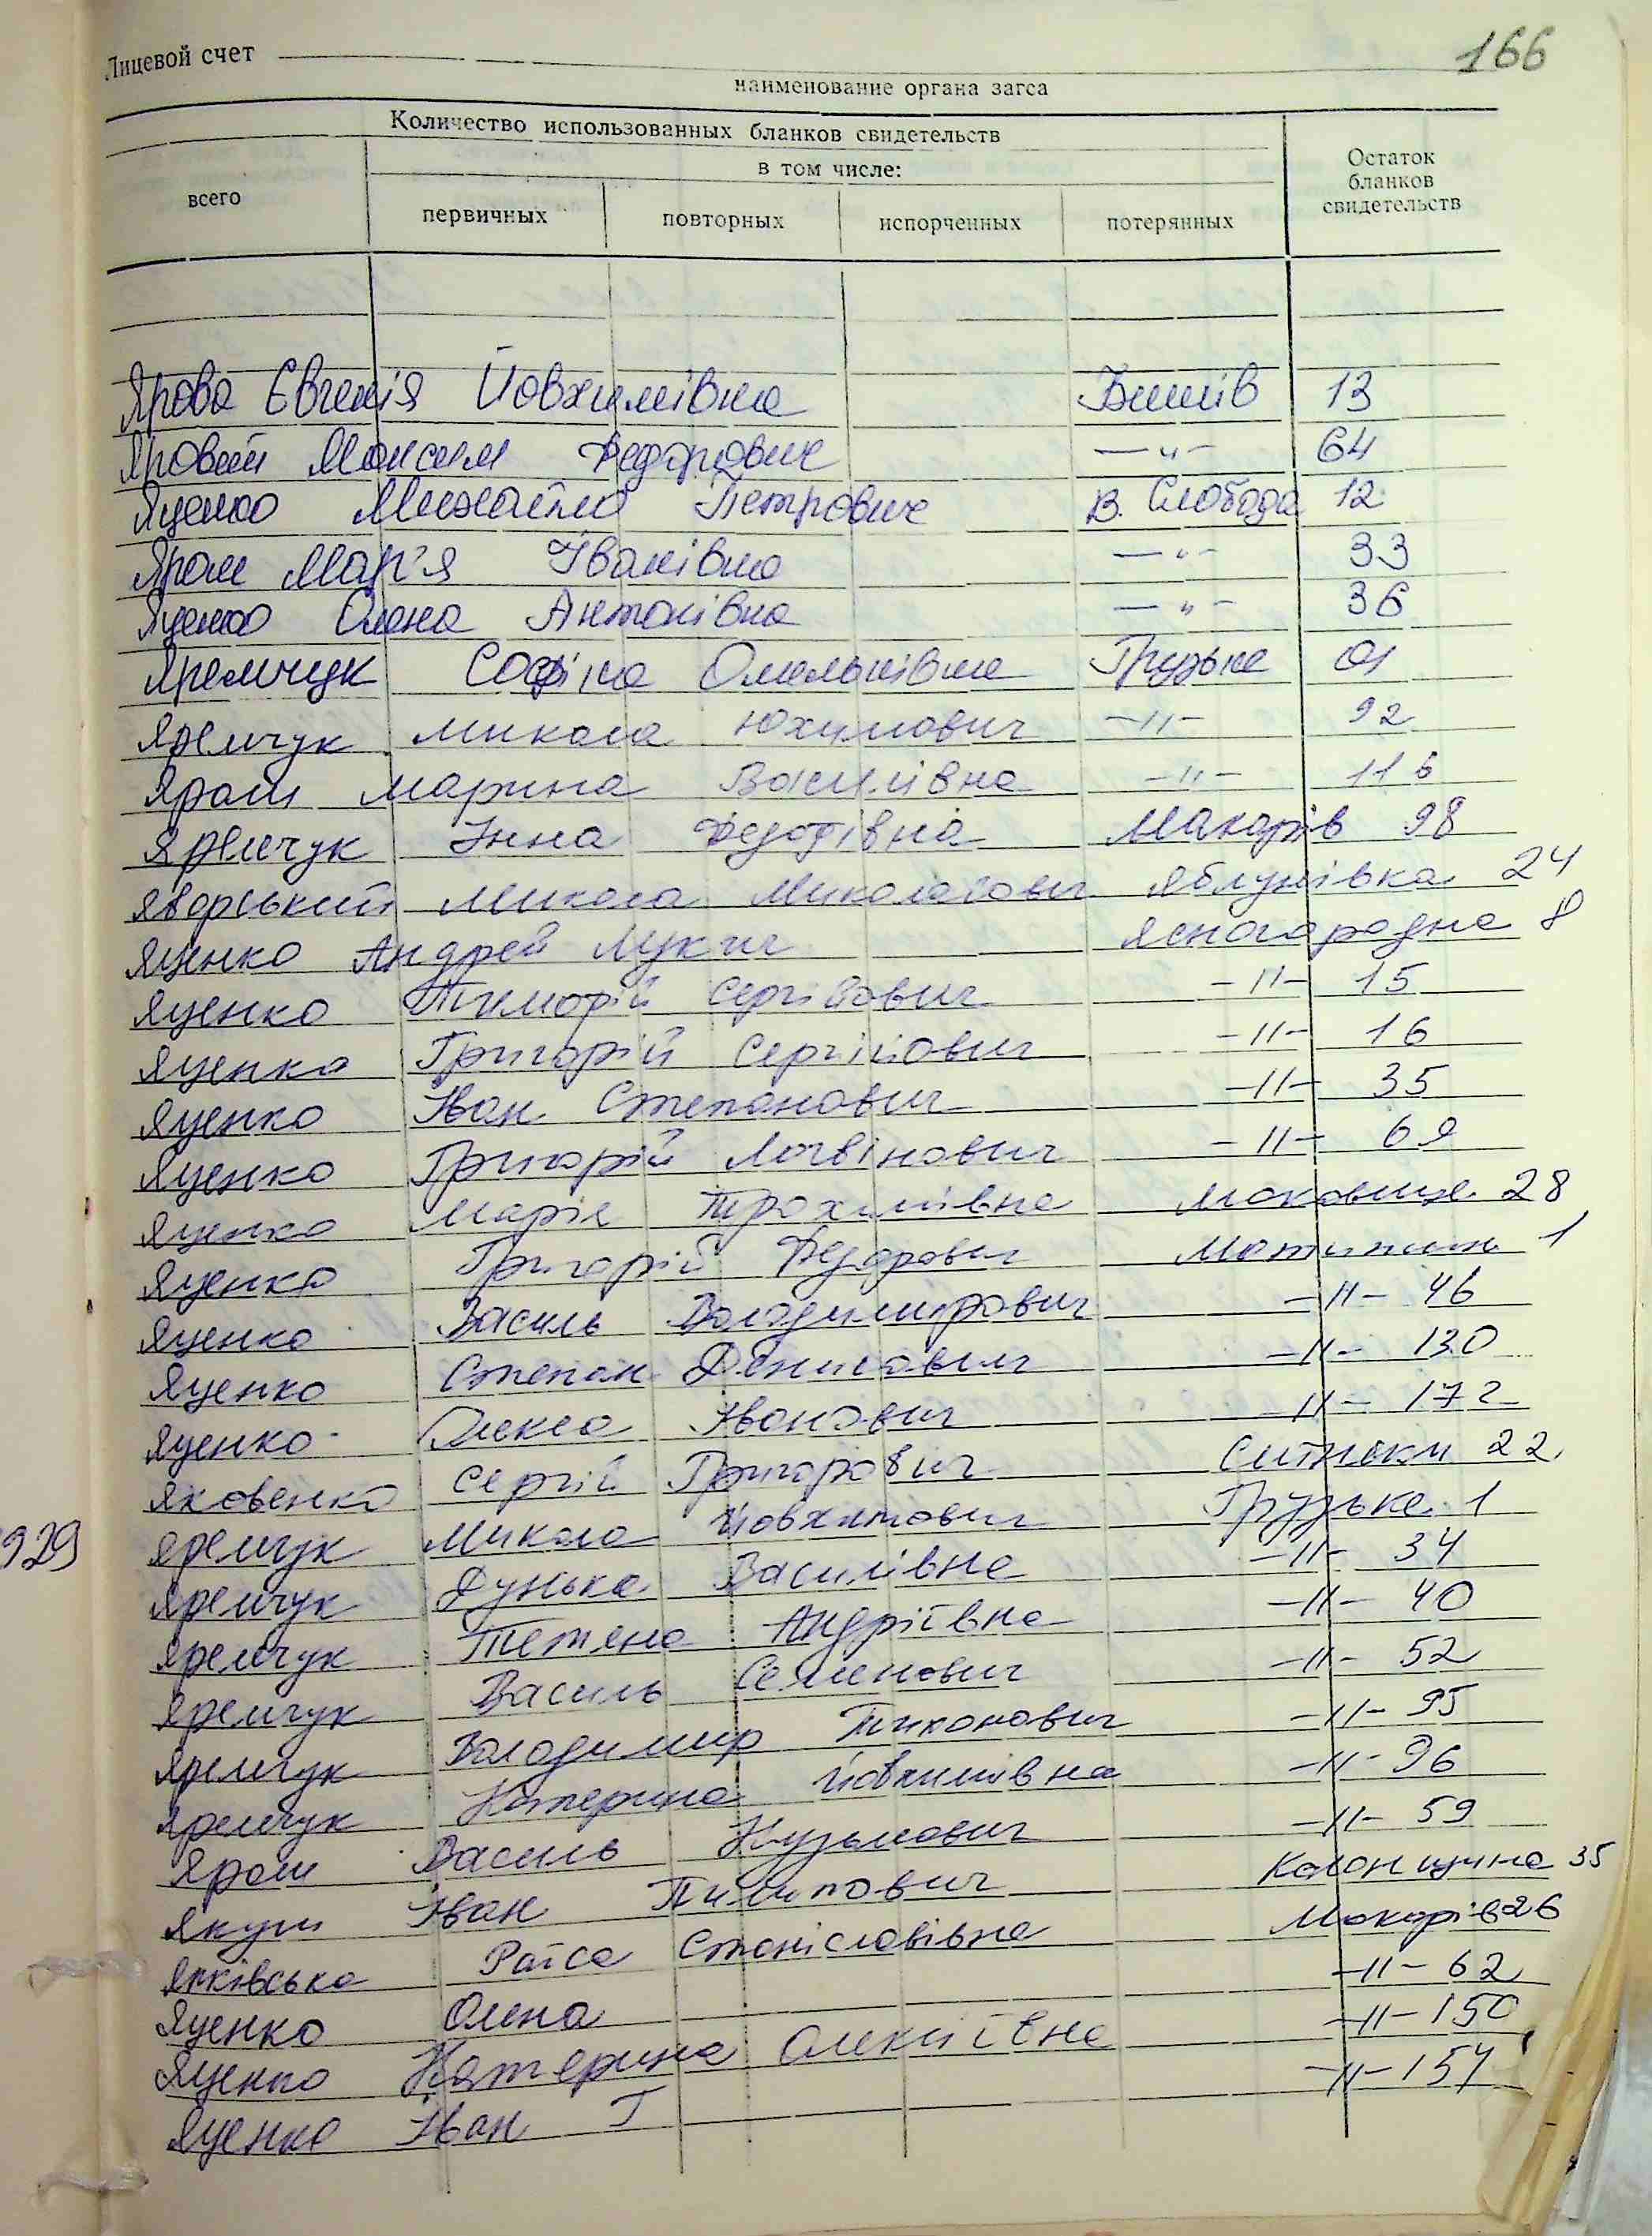 166
Лицевой счет
наименование органа загса
Количество использованных бланков свидетельств
в том числе:
всего
первичных
повторных
испорченных
потерянных
Остаток бланков свидетельств
Ярова Євгенія Йовхимівна Бишів 13
Яровий Максим Федорович —"— 64
Яценко Михайло Петрович В. Слобода 12
Ярош Мар'я Іванівна —"— 33
Яценко Олена Антонівна —"— 36
Яремчук Софія Омельнівна Грузьке 01
Яремчук Микола Юхимович —"— 92
Ярош Марина Василівна —"— 116
Яремчук Інна Федотівна Макарів 98
Яворський Микола Миколайович Яблунівка 24
Яценко Андрей Лукич Ясногородка 8
Яценко Тимофій Сергійович —"— 15
Яценко Григорій Сергійович —"— 16
Яценко Іван Степанович —"— 35
Яценко Григорій Логвінович —"— 69
Яценко Марія Трохимівна Маковище 28
Яценко Григорій Федорович Мотижин 1
Яценко Василь Володимирович —"— 46
Яценко Степан Денисович —"— 130
Яценко Олекса Іванович —"— 172
Яковенко Сергій Григорович Ситняки 22
929 Яремчук Микола Йовхимович Грузьке 1
Яремчук Дунька Василівна —"— 34
Яремчук Тетяна Андріївна —"— 40
Яремчук Василь Семенович —"— 52
Яремчук Володимир Тихонович —"— 95
Яремчук Катерина Йовхимівна —"— 96
Ярош Василь Кузьмович —"— 59
Якуш Іван Пилипович Колонщина 35
Раїса Станіславівна Макарів 26
Яценко Олена —"— 62
Яценко Катерина Олексіївна —"— 150
Яценко Іван Г —"— 154